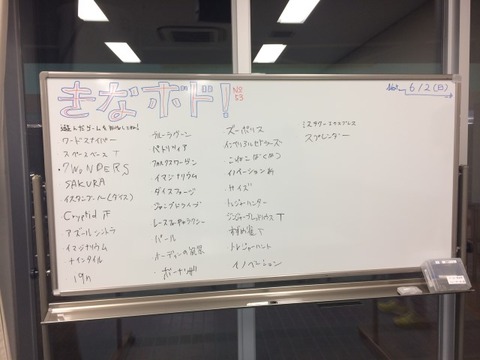 きなボド!
No 53
6/2(日)
遊んだゲームをおねがいします!
ワードスナイパー
スペースベース T
7WONDERS
SAKURA
イスタンブール(ダイス)
Cryptid
アズール シントラ
イマジナリウム
ナインタイル
ブルーラグーン
パトリツィア
イマジナリウム
ダイスフォージ
ジャンプドライブ
レースフォーギャラクシー
パール
オーディンの祝祭
ボーナンザ
ズーポリス
インペリアルセトラーズ
こねこばくはつ
イノベーション
サイズ
トレジャーハンター
ジンジャーブレッドハウス T
すずめ雀 T
トレジャーハント
イノベーション
スプレンダー